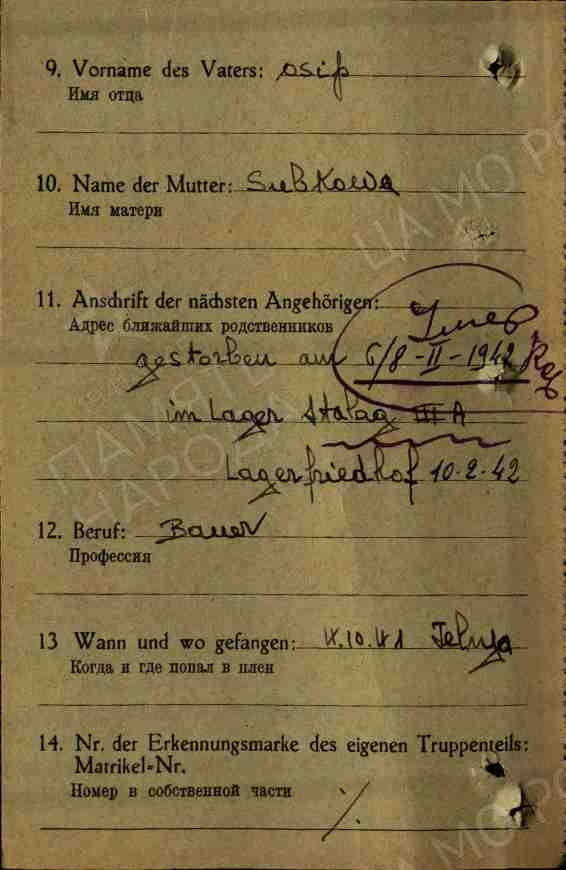 9. Vorname des Vaters: Osip
Имя отца
10. Name der Mutter: Subkowa
Имя матери
11. Anschrift der nächsten Angehörigen:
Адрес ближайших родственников
Умер
gestorben am 6/8-II-1942
im Lager Stalag III A
Lagerfriedhof 10.2.42
12. Beruf: Bauer
Профессия
13 Wann und wo gefangen: 4.10.41 Jelnja
Когда и где попал в плен
14. Nr. der Erkennungsmarke des eigenen Truppenteils:
Matrikel-Nr.
Номер в собственной части
ЦА МО РФ
ПАМЯТЬ
НАРОДА
ЦА МО РФ